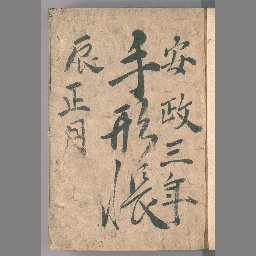 安政三年
手形帳
辰正月